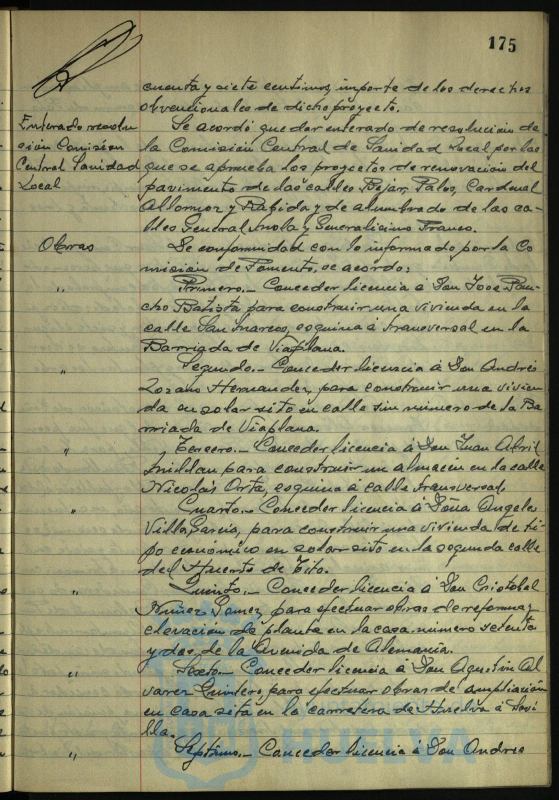 175
cuenta y siete centimos, importe de los derechos
obvencionales de dicho proyecto.
Enterado resolu
sición Comisión
Central Sanidad
Local
Se acordó quedar enterado de resolución de
la Comisión Central de Sanidad Local por las
que se aprueba los proyectos de renovación del
pavimento de las calles Bejar, Palos, Cardenal
Albornoz y Rabida y de alumbrado de las ca-
lles General Mola y Generalisimo Franco.
Obras
De conformidad con lo informado por la Co
misión de Fomento, se acordo:
"
Primero.- Conceder licencia á Don Jose Pon-
cho Batista para construir una vivienda en la
calle San Marcos, esquina á transversal en la
Barriada de Viaplana.
"
Segundo.- Conceder licencia á Don Andrés
Lozano Hernandez, para construir una vivien
da en solar sito en calle sin número de la Ba
rriada de Viaplana.
"
Tercero.- Conceder licencia á Don Juan Abril
Millan para construir un almacén en la calle
Nicolás Orta, esquina á calle transversal.
"
Cuarto.- Conceder licencia á Doña Angela
Villa Garcia, para construir una vivienda de ti-
po económico en solar sito en la segunda calle
del Huerto de Tito.
"
Quinto.- Conceder licencia á Don Cristobal
Nuñez Gomez para efectuar obras de reforma y
elevación de planta en la casa número setenta
y dos, de la Avenida de Alemania.
"
Sexto.- Conceder licencia á Don Agustin Al
varez Quintero, para efectuar obras de ampliación
en casa sita en la carretera de Huelva á Sevi
lla.
"
Septimo.- Conceder licencia á Don Andres
HUELVA